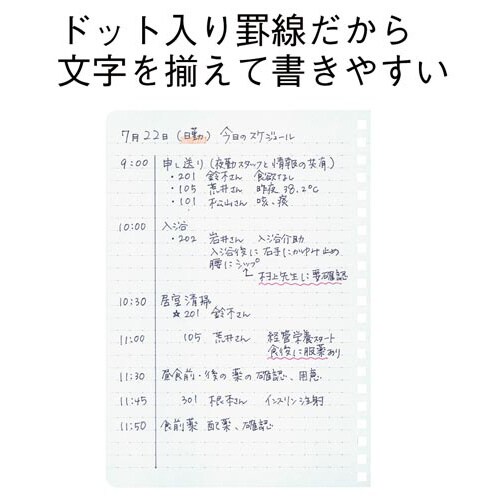 ドット入り罫線だから
文字を揃えて書きやすい
7月22日(日勤) 今日のスケジュール
9:00 申し送り(夜勤スタッフと情報の共有)
・201 鈴木さん 食欲なし
・105 荒井さん 昨夜38.2℃
・101 松山さん 咳、痰
10:00 入浴
・202 岩井さん 入浴介助
入浴後に右手にかゆみ止め
腰にシップ
村上先生に要確認
10:30 居室清掃
☆201 鈴木さん
11:00 105 荒井さん 経管栄養スタート
食後に服薬あり
11:30 昼食前・後の薬の確認、用意
11:45 301 根本さん インスリン注射
11:50 食前薬 配薬、確認